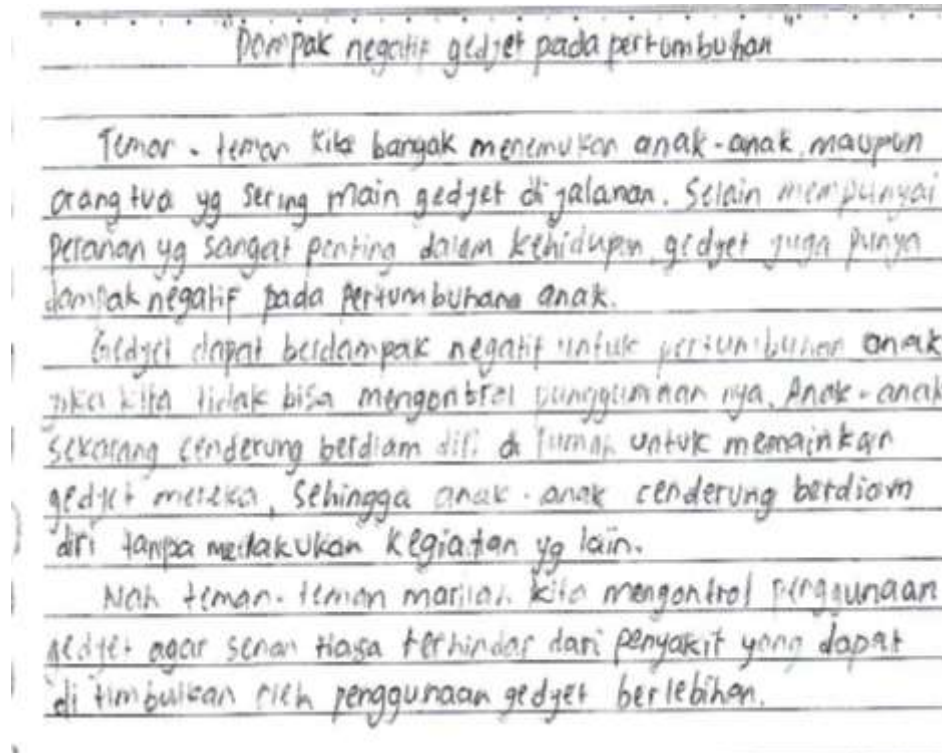 "Dampak negatif gedjet pada pertumbuhan"
Teman - teman kita banyak menemukan anak-anak, maupun
orang tua yg sering main gedjet di jalanan. Selain mempunyai
peranan yg sangat penting dalam kehidupan, gedjet juga punya
dampak negatif pada pertumbuhana anak.
Gedjet dapat berdampak negatif untuk pertumbuhan anak
jika kita tidak bisa mengontrol penggunaan nya. Anak-anak
sekarang cenderung berdiam diri di rumah untuk memainkan
gedjet mereka, sehingga anak-anak cenderung berdiam
diri tanpa melakukan kegiatan yg lain.
Nah teman-teman marilah kita mengontrol penggunaan
gedjet agar terhindar dari penyakit yang dapat
di timbulkan oleh penggunaan gedjet berlebihan.